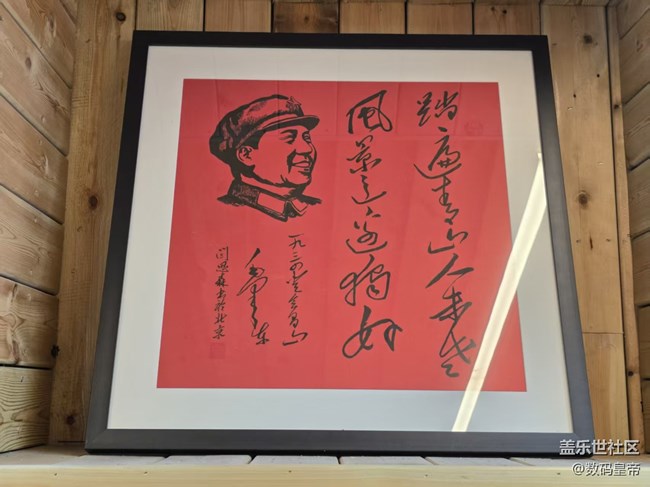 踏遍青山人未老
风景这边独好
一九三四 会昌山
毛泽东
书于北京
盖乐世社区
@数码皇帝